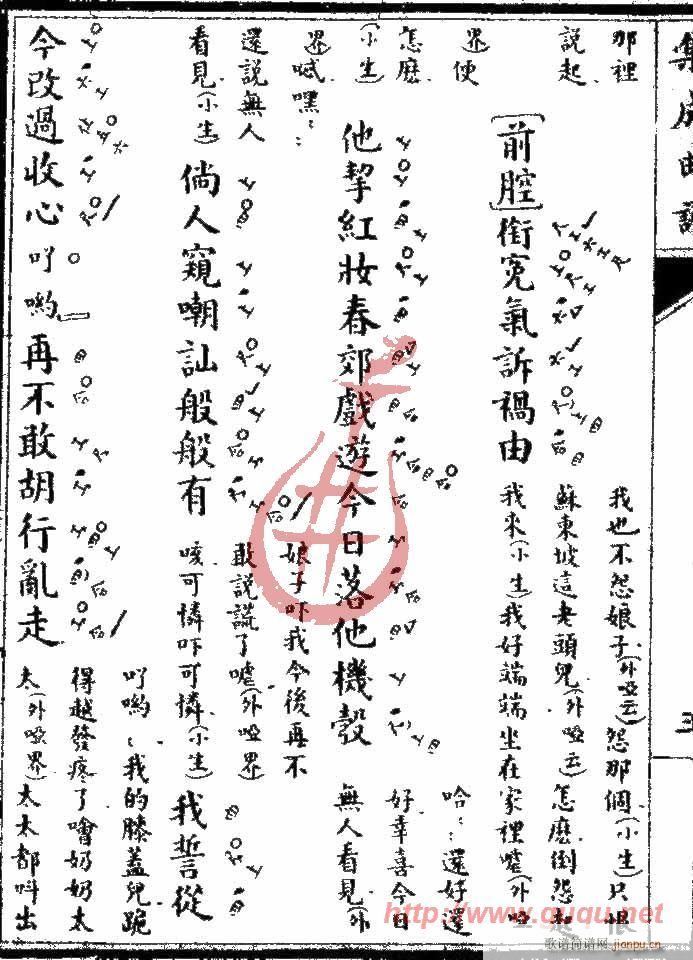 集成曲譜
那裡
說起
〔前腔〕銜冤氣訴禍由
我也不怨娘子(外啞云)怨那個(小生)只恨
蘇東坡這老頭兒(外啞云)怎麽倒怨起
我來(小生)我好端端坐在家裡嘘(外啞
界便
怎麽
(小生)
他挈紅妝春郊戲遊今日落他機彀
哈::還好還
好幸喜今日
無人看見(外
界喊嘿::
還說無人
看見(小生)
倘人窺嘲訕般般有
娘子吓我今後再不
敢說謊了嘘(外啞界
咳可憐吓可憐(小生)
我誓從
今改過收心吖喲再不敢胡行亂走
吖喲::我的膝蓋兒跪
得越發疼了噲奶奶太
太(外啞界)太太都呌出
http://www.ququ.net
歌谱简谱网
jianpu.cn